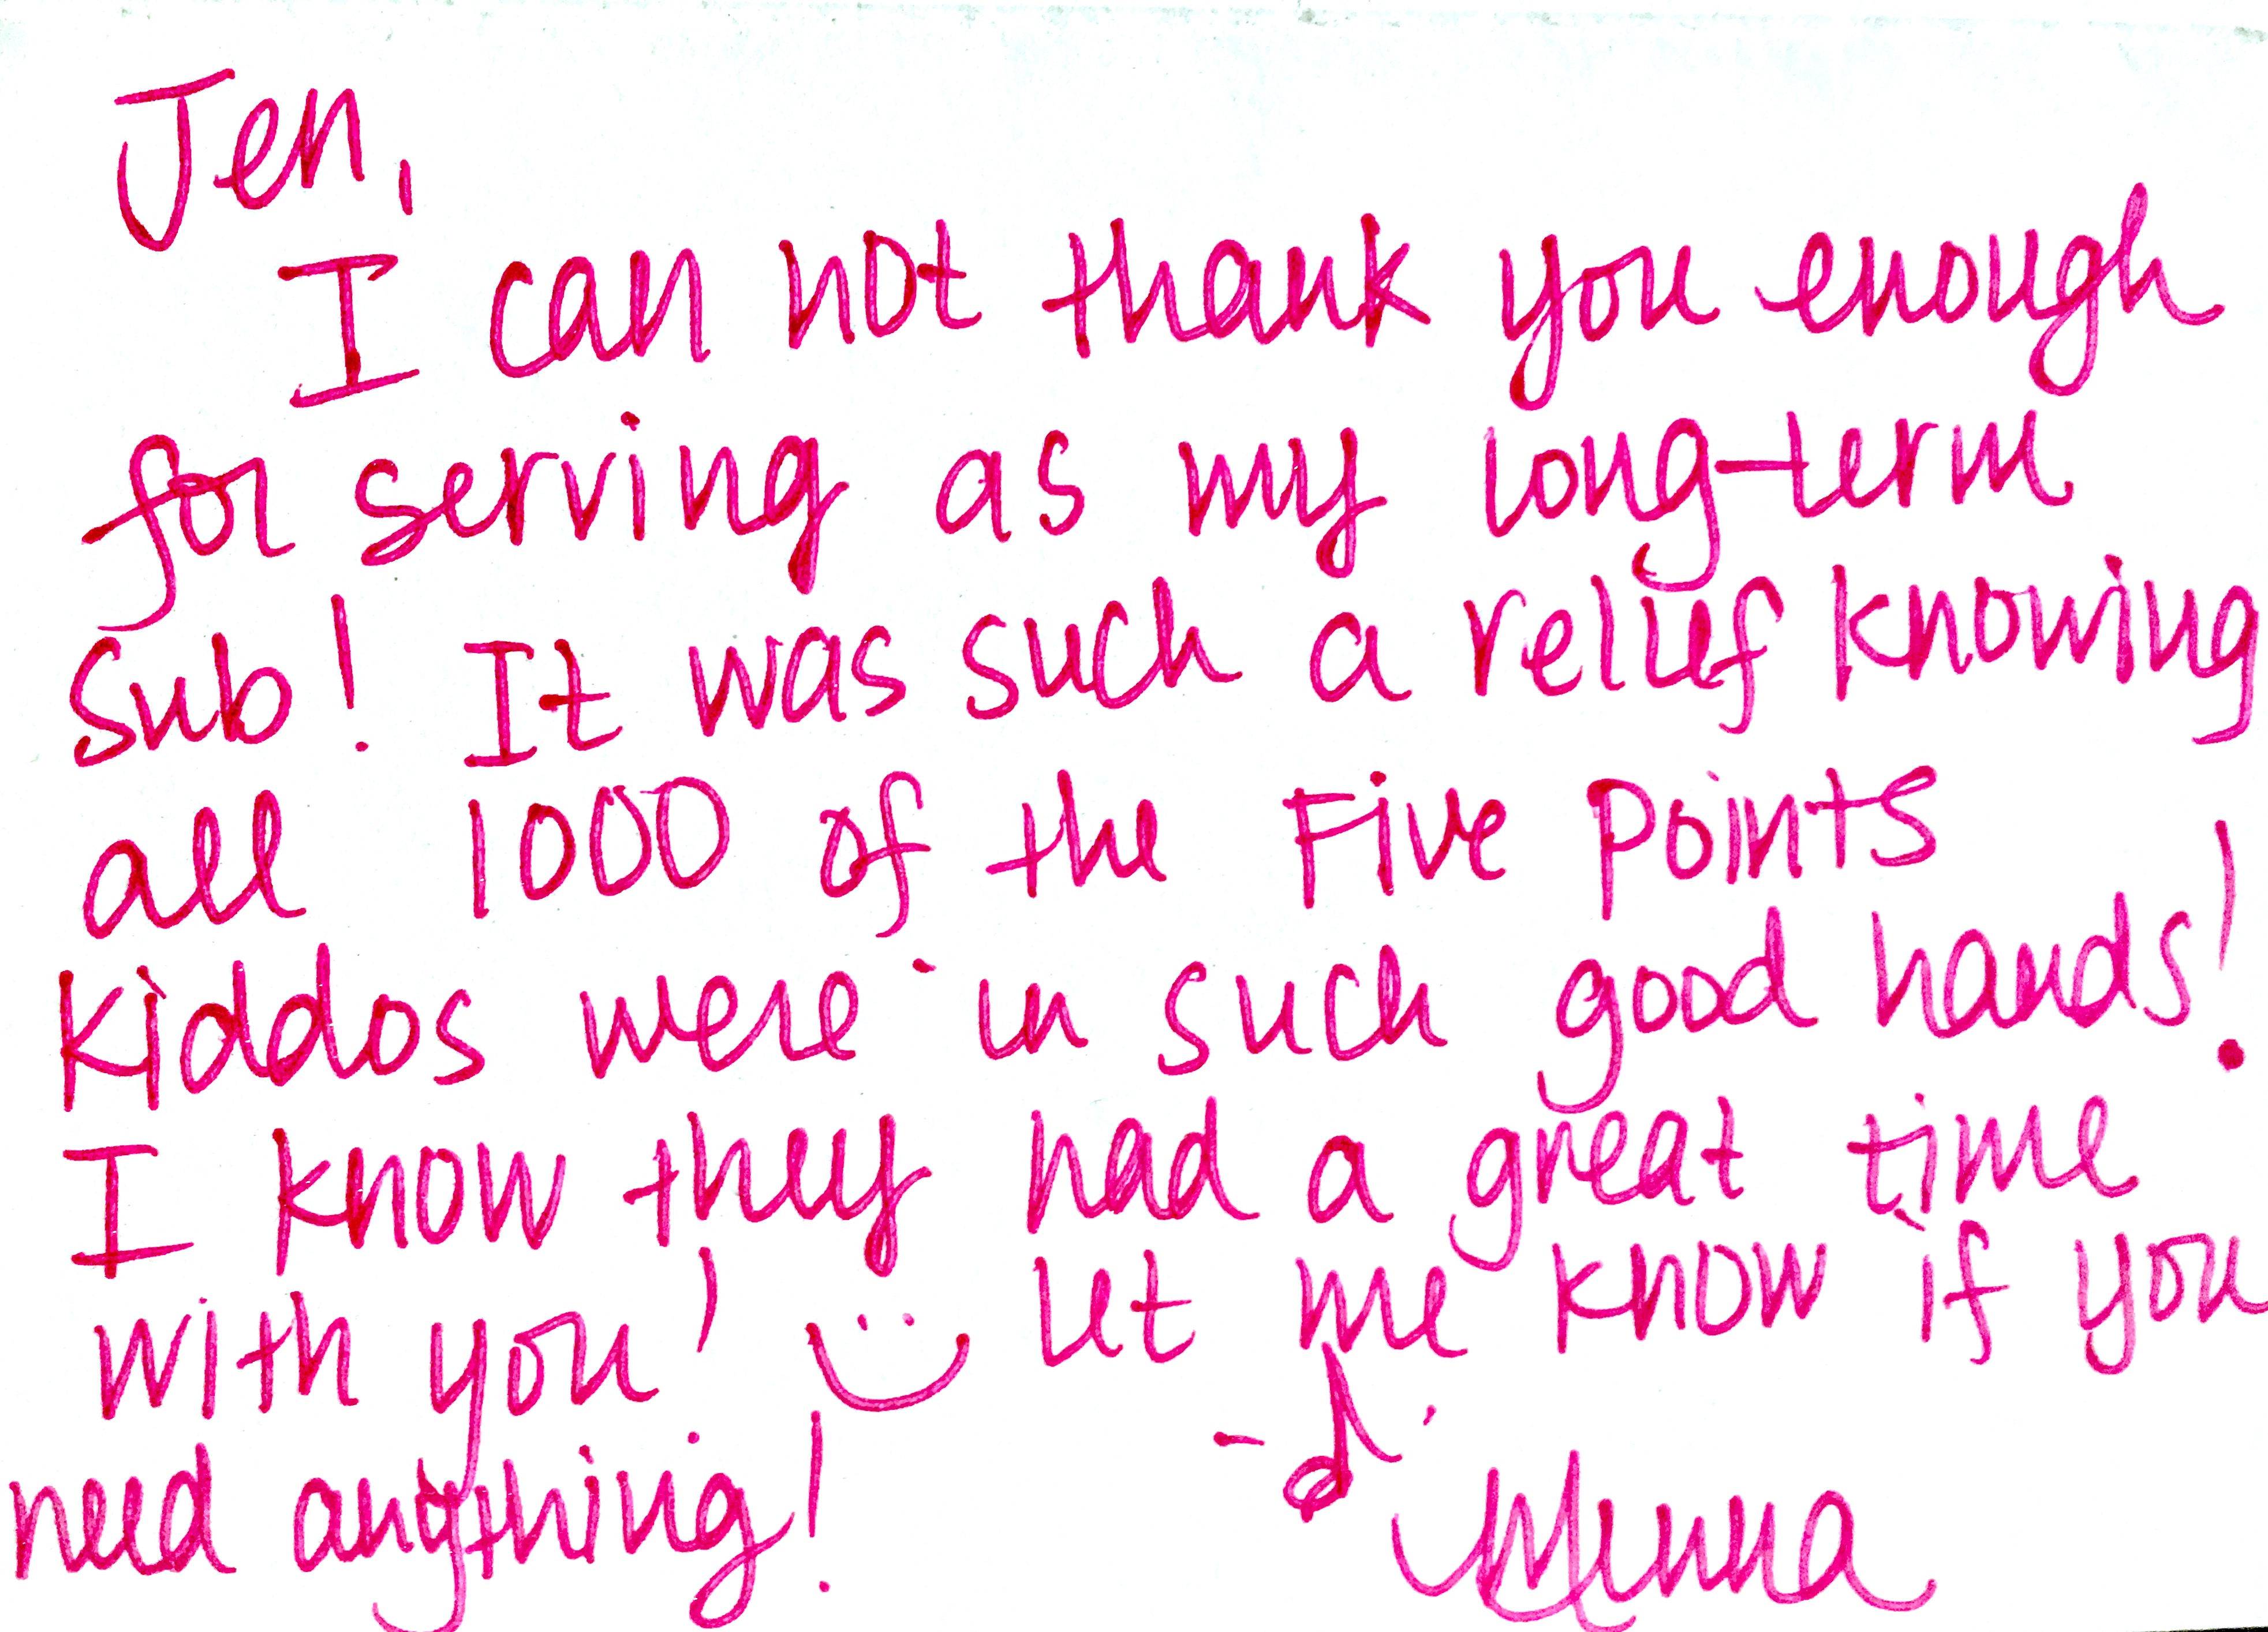 Jen,
I can not thank you enough
for serving as my long-term
Sub! It was such a relief knowing
all 1000 of the Five Points
Kiddos were in such good hands!
I know they had a great time
with you! let me know if you
need anything!